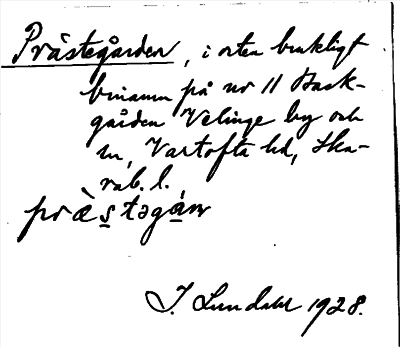 Prästegården, i orten brukligt
binamn på nr 11 Back-
gården Velinge by och
sn, Vartofta hd, Ska-
rab. l.
prästəgán
J. Lundahl 1928.